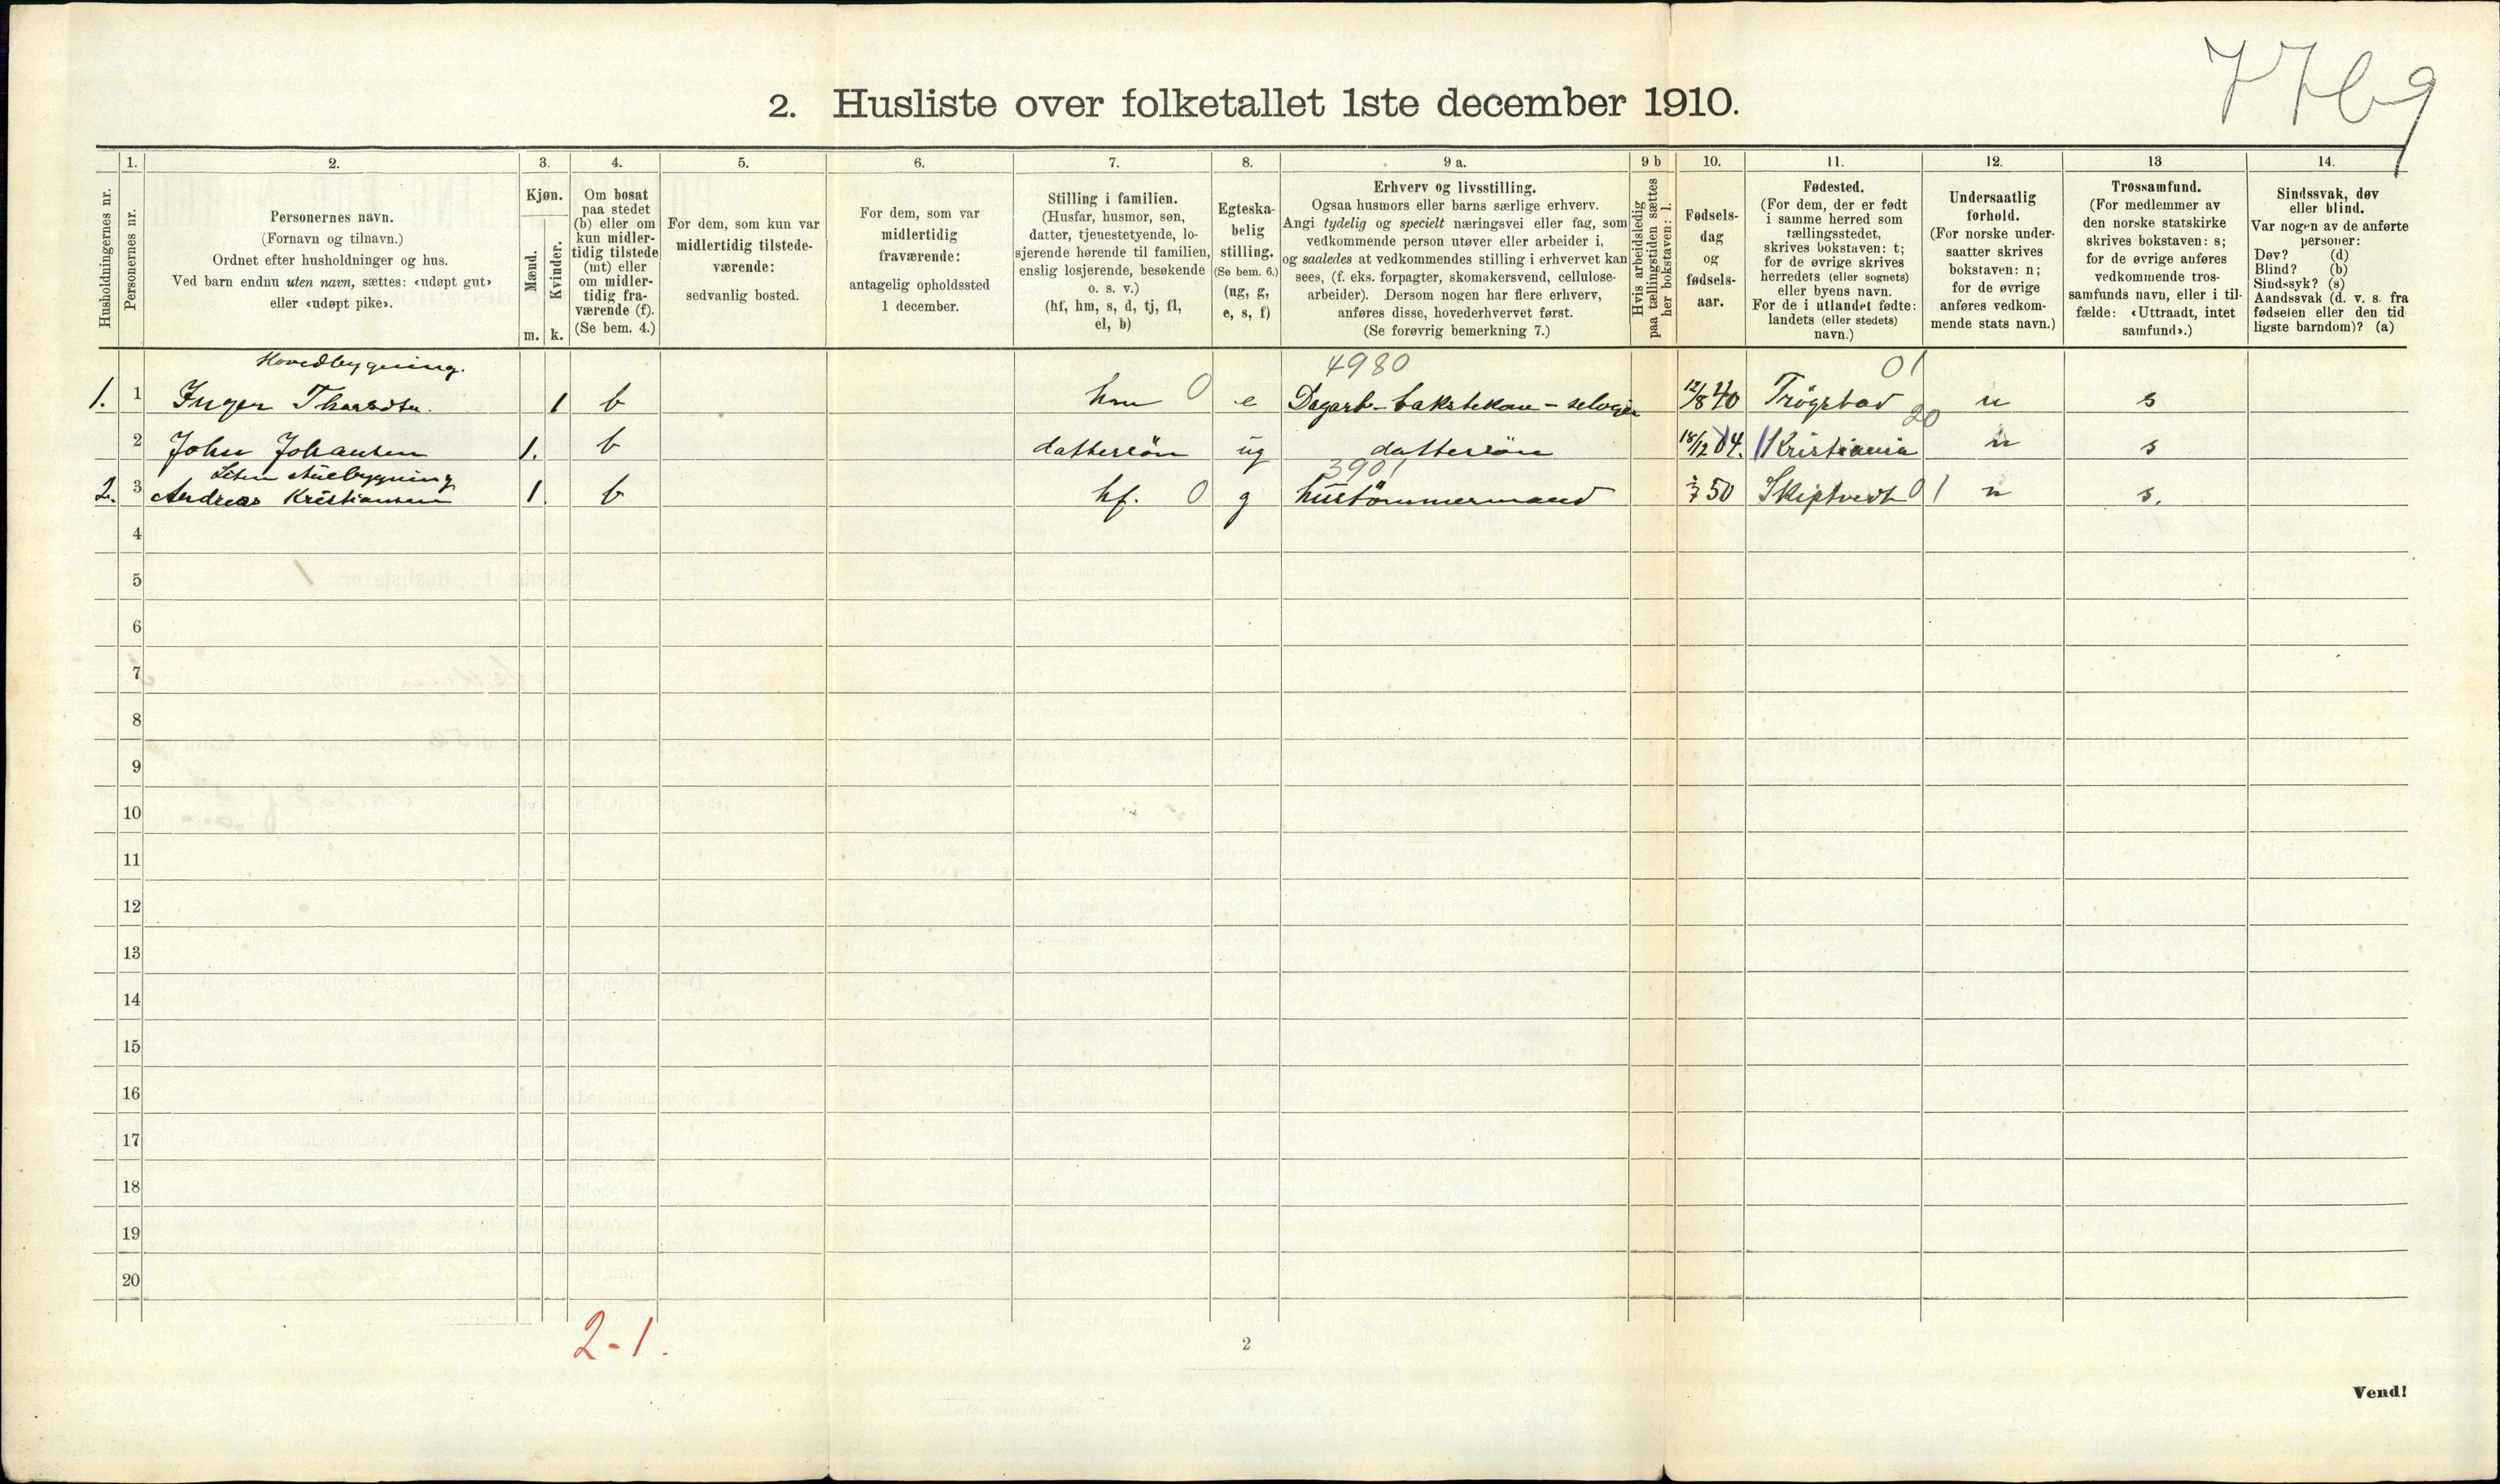 7769
2. Husliste over folketallet 1ste december 1910.
Husholdningernes nr.
1. Personernes nr.
2. Personernes navn.
(Fornavn og tilnavn.)
Ordnet efter husholdninger og hus.
Ved barn endnu uten navn, sættes: «udøpt gut»
eller «udøpt pike».
3. Kjøn.
Mænd. Kvinder.
m. k.
4. Om bosat
paa stedet
(b) eller om
kun midler-
tidig tilstede
(mt) eller
om midler-
tidig fra-
værende (f).
(Se bem. 4.)
5. For dem, som kun var
midlertidig tilstede-
værende:
sedvanlig bosted.
6. For dem, som var
midlertidig
fraværende:
antagelig opholdssted
1 december.
7. Stilling i familien.
(Husfar, husmor, søn,
datter, tjenestetyende, lo-
sjerende hørende til familien,
enslig losjerende, besøkende
o. s. v.)
(hf, hm, s, d, tj, fl,
el, b)
8. Egteska-
belig
stilling.
(Se bem. 6.)
(ug, g,
e, s, f)
9 a. Erhverv og livsstilling.
Ogsaa husmors eller barns særlige erhverv.
Angi tydelig og specielt næringsvei eller fag, som
vedkommende person utøver eller arbeider i,
og saaledes at vedkommendes stilling i erhvervet kan
sees, (f. eks. forpagter, skomakersvend, cellulose-
arbeider). Dersom nogen har flere erhverv,
anføres disse, hovederhvervet først.
(Se forøvrig bemerkning 7.)
9 b Hvis arbeidsledig
paa tællingstiden sættes
her bokstaven: l.
10. Fødsels-
dag
og
fødsels-
aar.
11. Fødested.
(For dem, der er født
i samme herred som
tællingsstedet,
skrives bokstaven: t;
for de øvrige skrives
herredets (eller sognets)
eller byens navn.
For de i utlandet fødte:
landets (eller stedets)
navn.)
12. Undersaatlig
forhold.
(For norske under-
saatter skrives
bokstaven: n;
for de øvrige
anføres vedkom-
mende stats navn.)
13 Trossamfund.
(For medlemmer av
den norske statskirke
skrives bokstaven: s;
for de øvrige anføres
vedkommende tros-
samfunds navn, eller i til-
fælde: «Uttraadt, intet
samfund».)
14. Sindssvak, døv
eller blind.
Var nogen av de anførte
personer:
Døv? (d)
Blind? (b)
Sindssyk? (s)
Aandssvak (d. v. s. fra
fødselen eller den tid
ligste barndom)? (a)
Hovedbygning. 4980 01
1. 1 Inger 1 b hm 0 e 12/8 40 Trøgstad n s
20
2 John Johansen 1. b dattersön ug dattersön 18/12 04. Kristiania n s
3901
2. 3 Andreas Kristiansen 1. b hf. 0 g hustömmermand 50 Skiptvedt 01 n s.
4
5
6
7
8
9
10
11
12
13
14
15
16
17
18
19
20
2-1.
2
Vend!